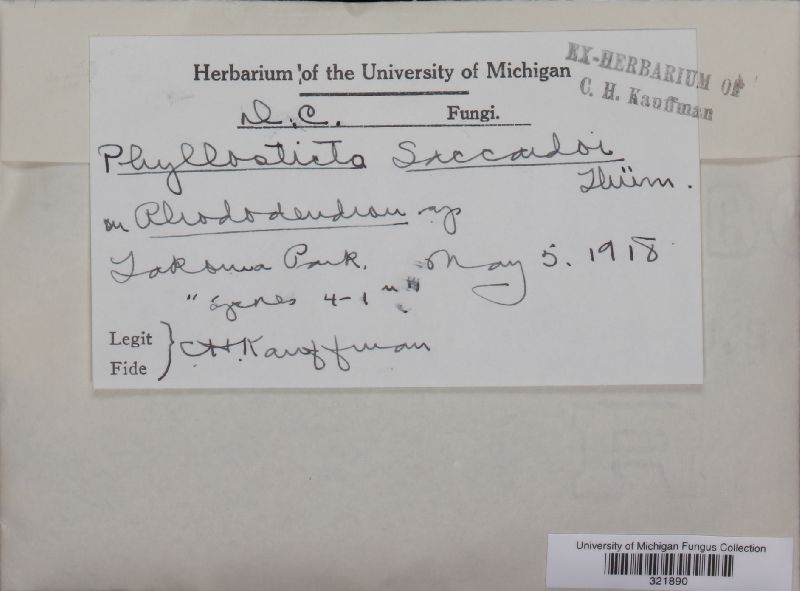 Herbarium of the University of Michigan
EX-HERBARIUM OF
C. H. Kauffman
D.C. Fungi.
Phyllosticta Saccardoi
Thüm.
on Rhododendron sp
Takoma Park. May 5. 1918
4-1
Legit
Fide
CH Kauffman
University of Michigan Fungus Collection
321890